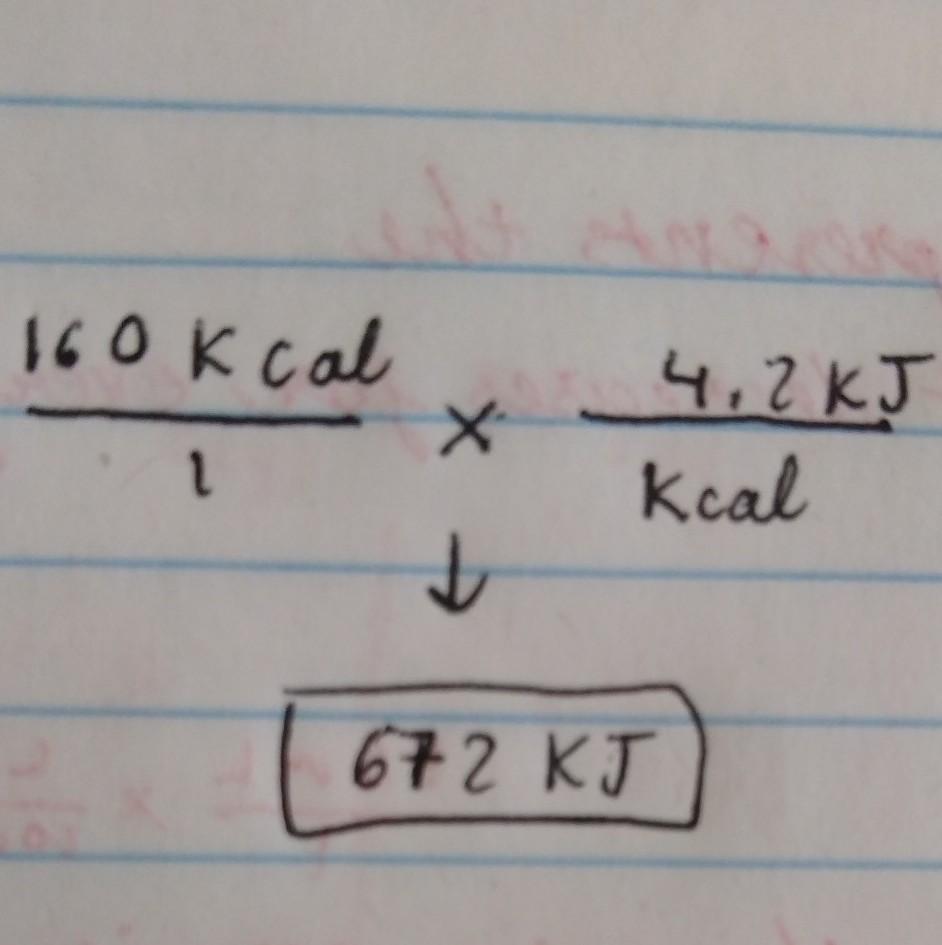 160 Kcal × 4.2 KJ
1 Kcal
↓
672 KJ